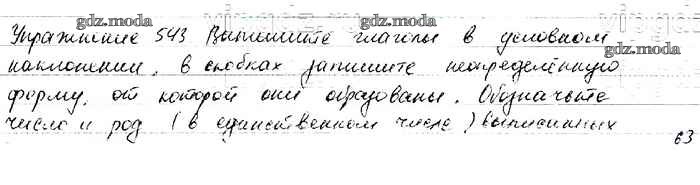 gdz.moda
gdz.moda
Упражнение 543 Выпишите глаголы в условном
gdz.moda
наклонении, в скобках запишите неопределённую
форму, от которой они образованы. Обозначьте
число и род (в единственном числе) выписанных
63